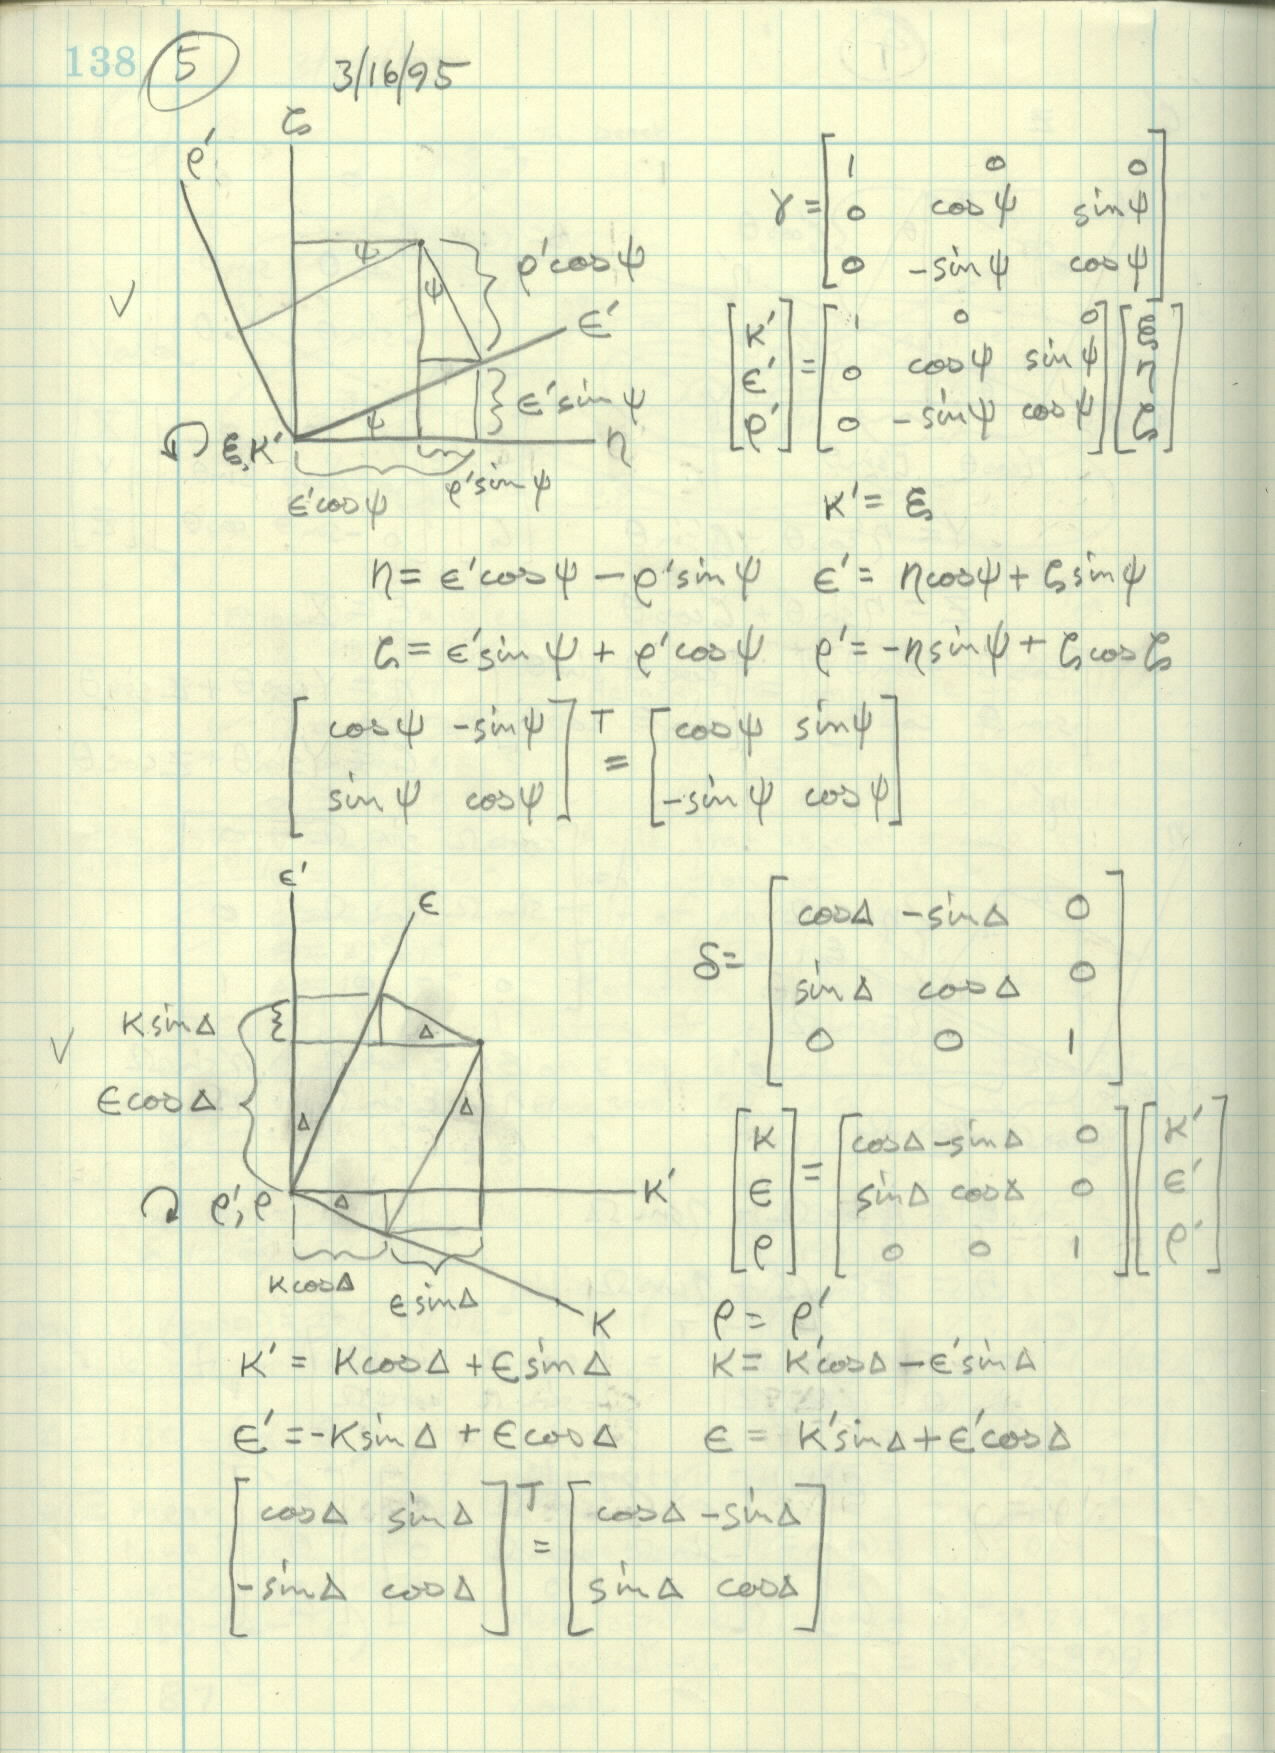 138 5 3/16/95
ζ
ρ'
ψ
ψ
ρ'cosψ
ϵ'
ϵ'sinψ
ψ
ξ,κ'
η
ϵ'cosψ
ρ'sinψ
γ = [ 1 0 0
0 cosψ sinψ
0 -sinψ cosψ ]
[ κ' ϵ' ρ' ] = [ 1 0 0
0 cosψ sinψ
0 -sinψ cosψ ] [ ξ η ζ ]
κ' = ξ
η = ϵ'cosψ - ρ'sinψ ϵ' = ηcosψ + ζsinψ
ζ = ϵ'sinψ + ρ'cosψ ρ' = -ηsinψ + ζcosζ
[ cosψ -sinψ ]ᵀ = [ cosψ sinψ ]
[ sinψ cosψ ] [ -sinψ cosψ ]
ϵ'
ϵ
κsinΔ
Δ
ϵcosΔ
Δ
Δ
ρ',ρ
Δ
κ'
κcosΔ
ϵsinΔ
κ
δ = [ cosΔ -sinΔ 0
sinΔ cosΔ 0
0 0 1 ]
[ κ ϵ ρ ] = [ cosΔ -sinΔ 0
sinΔ cosΔ 0
0 0 1 ] [ κ' ϵ' ρ' ]
ρ = ρ'
κ' = κcosΔ + ϵsinΔ κ = κ'cosΔ - ϵ'sinΔ
ϵ' = -κsinΔ + ϵcosΔ ϵ = κ'sinΔ + ϵ'cosΔ
[ cosΔ sinΔ ]ᵀ = [ cosΔ -sinΔ ]
[ -sinΔ cosΔ ] [ sinΔ cosΔ ]